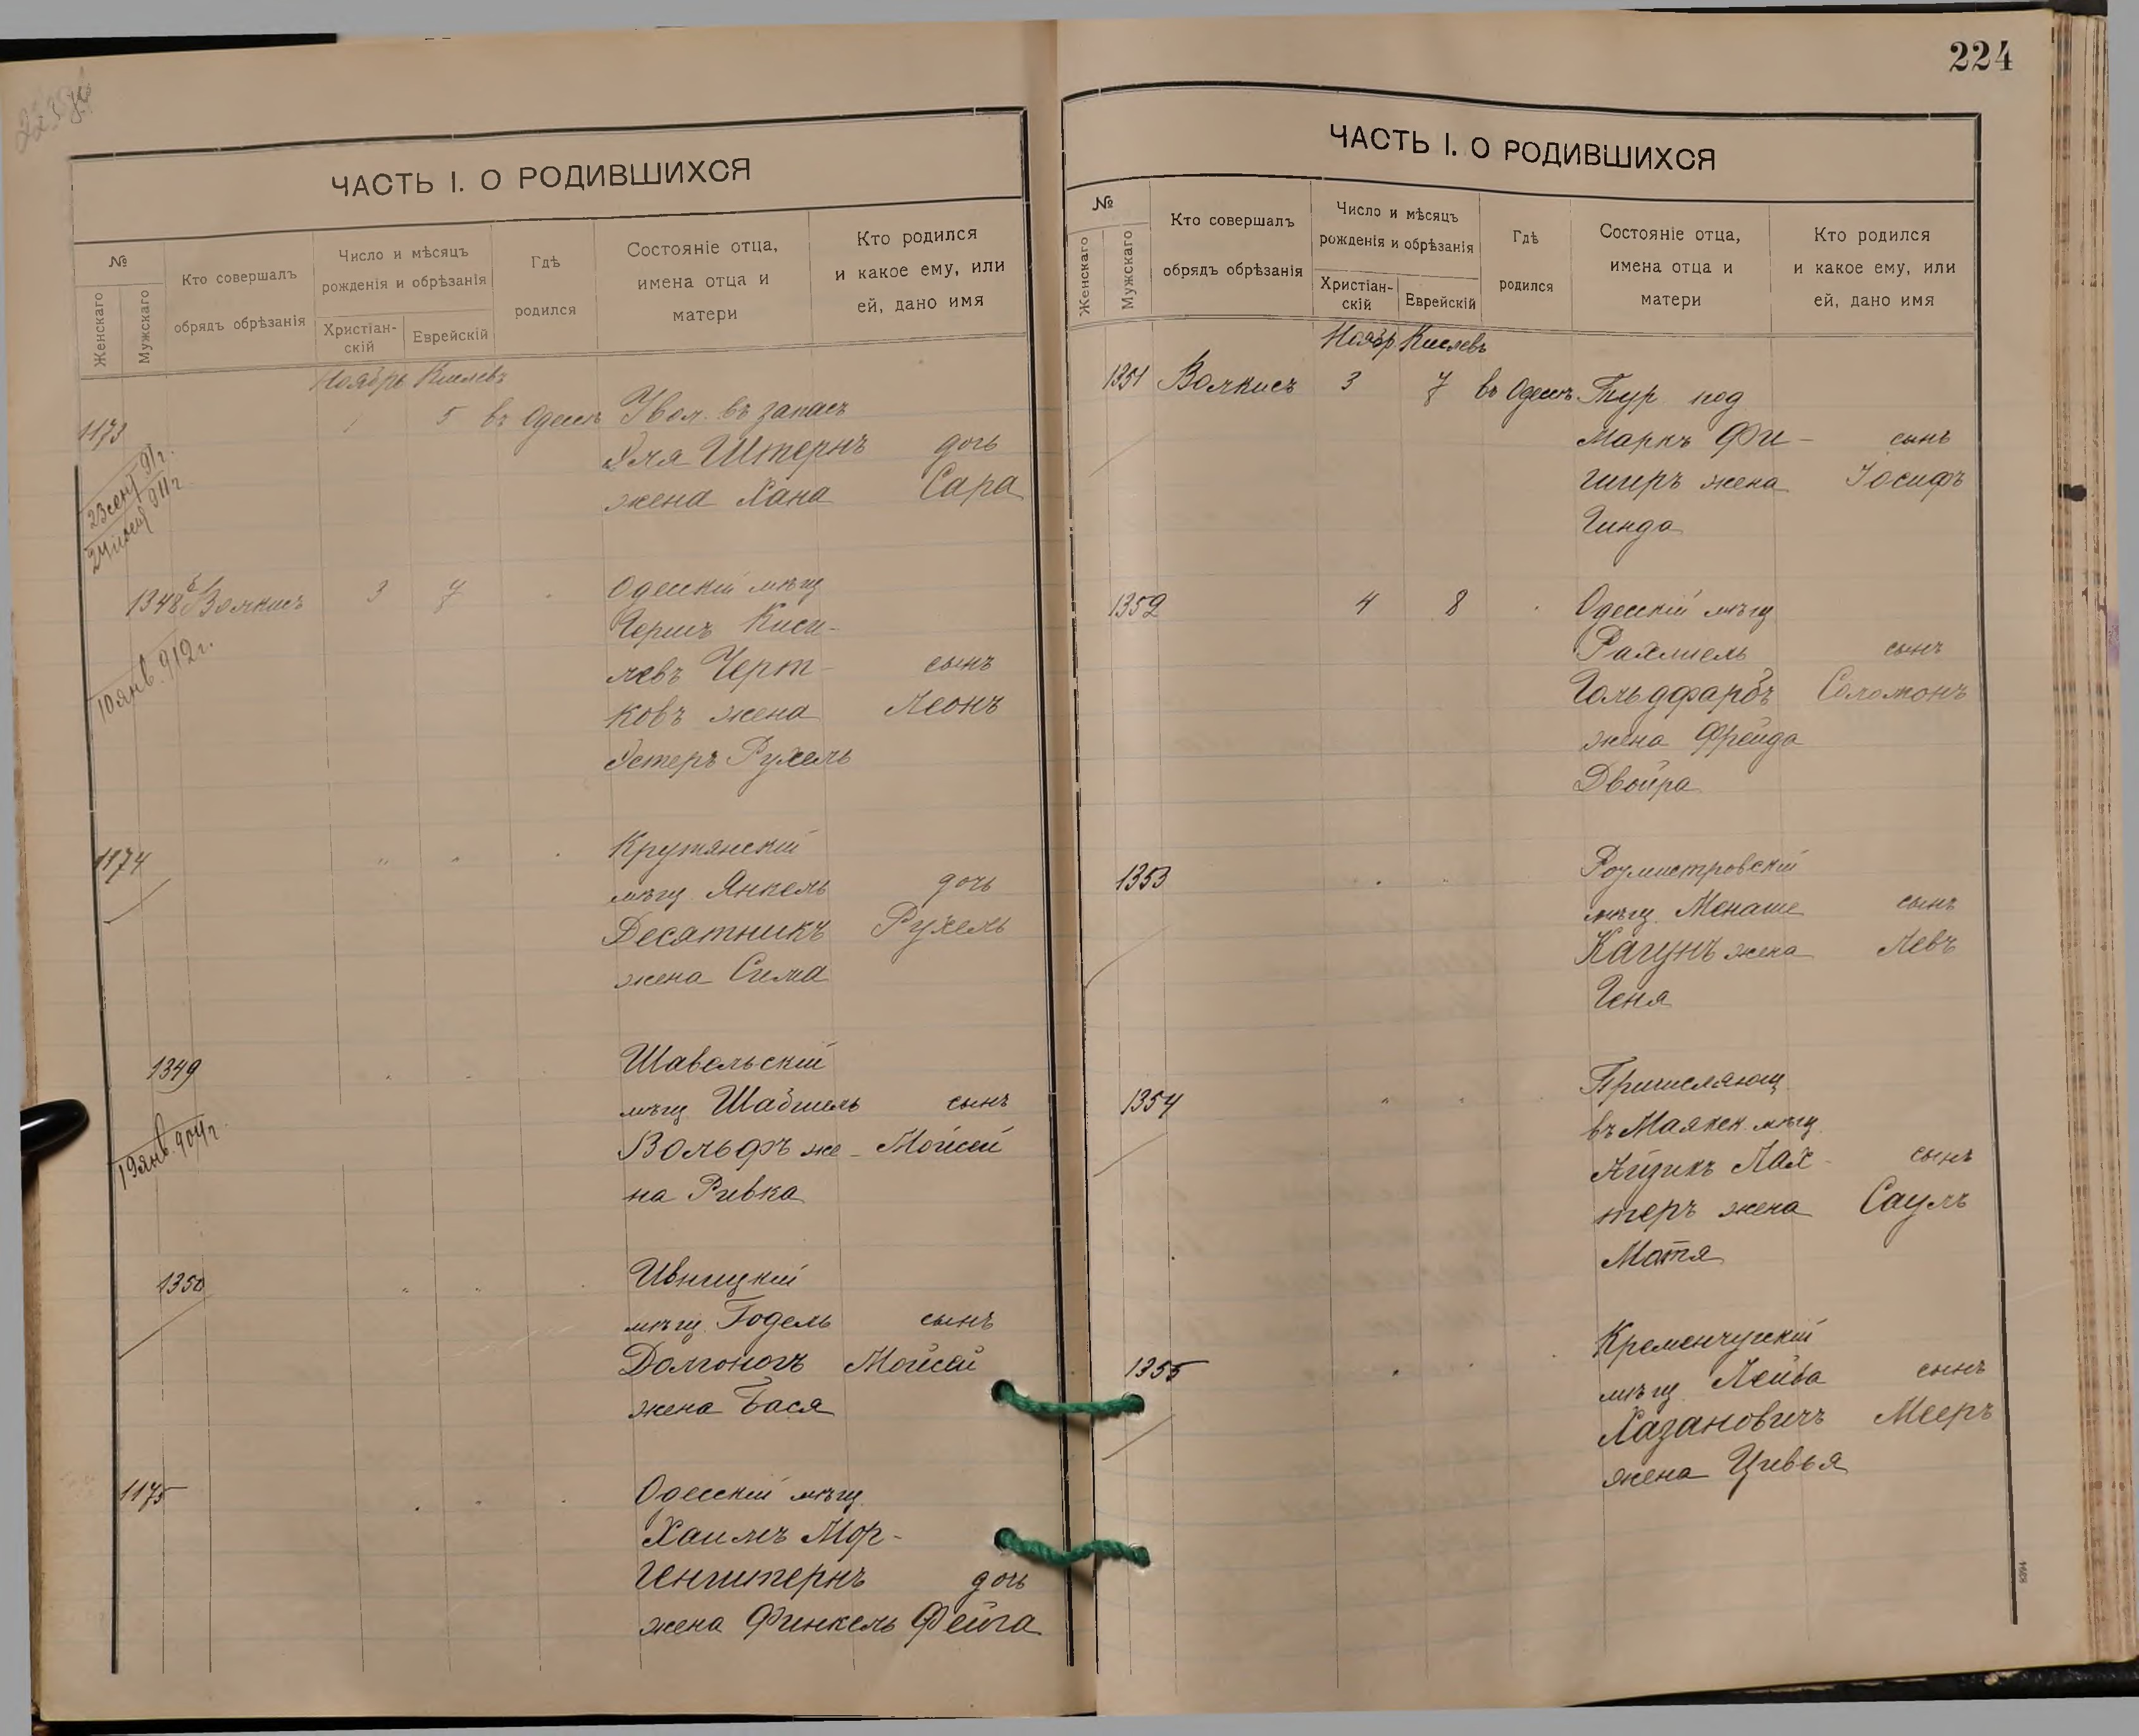 ЧАСТЬ I. О РОДИВШИХСЯ
№
Женскаго
Мужскаго
Кто совершалъ
обрядъ обрѣзанія
Число и мѣсяцъ
рожденія и обрѣзанія
Христіан-
скій
Еврейскій
Гдѣ
родился
Состояніе отца,
имена отца и
матери
Кто родился
и какое ему, или
ей, дано имя
Ноябрь Кислевъ
1173 1 5 въ Одессѣ Увол. въ запасъ
Эля Штернъ дочь
жена Хана Сара
1348 Волкисъ 3 7 Одесскій мѣщ
Гершъ Киси-
левъ Черт- сынъ
ковъ жена Леонъ
Эстеръ Рухель
10 янв. 912 г.
1174 Крутянскій
мѣщ. Янкель дочь
Десятникъ Рухель
жена Сима
1349 Шавельскій
мѣщ Шабшель сынъ
Вольфъ же- Мойсей
на Ривка
19 янв. 904 г.
1350 Ивницкій
мѣщ. Годель сынъ
Долгоногъ Мойсей
жена Бася
1175 Одесскій мѣщ.
Хаимъ Мор-
генштернъ дочь
жена Финкель Фейга
224
ЧАСТЬ I. О РОДИВШИХСЯ
№
Женскаго
Мужскаго
Кто совершалъ
обрядъ обрѣзанія
Число и мѣсяцъ
рожденія и обрѣзанія
Христіан-
скій
Еврейскій
Гдѣ
родился
Состояніе отца,
имена отца и
матери
Кто родился
и какое ему, или
ей, дано имя
Ноябр Кислевъ
1351 Волкисъ 3 7 въ Одессѣ Тур. под
Маркъ Фи- сынъ
шеръ жена Іосифъ
Гинда
1352 4 8 Одесскій мѣщ
Рахмиель сынъ
Гольдфарбъ Соломонъ
жена Фрейда
Двойра
1353
мѣщ. Менаше сынъ
Кагунъ жена Левъ
Геня
1354 Причисляющ
въ Маякск. мѣщ.
Айзикъ Лах- сынъ
теръ жена Саулъ
Мотя
1355 Кременчугскій
мѣщ. Лейба сынъ
Хазановичъ Мееръ
жена Цивья